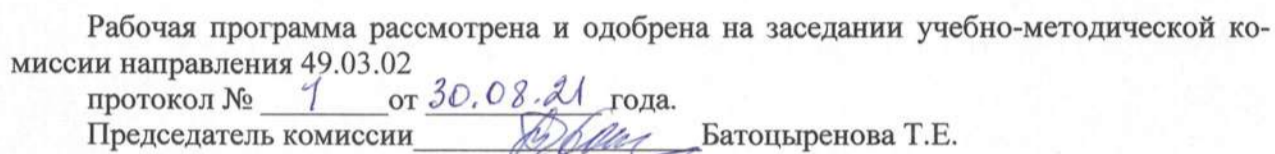 Рабочая программа рассмотрена и одобрена на заседании учебно-методической ко-
миссии направления 49.03.02
протокол № 1 от 30.08.21 года.
Председатель комиссии Батоцыренова Т.Е.